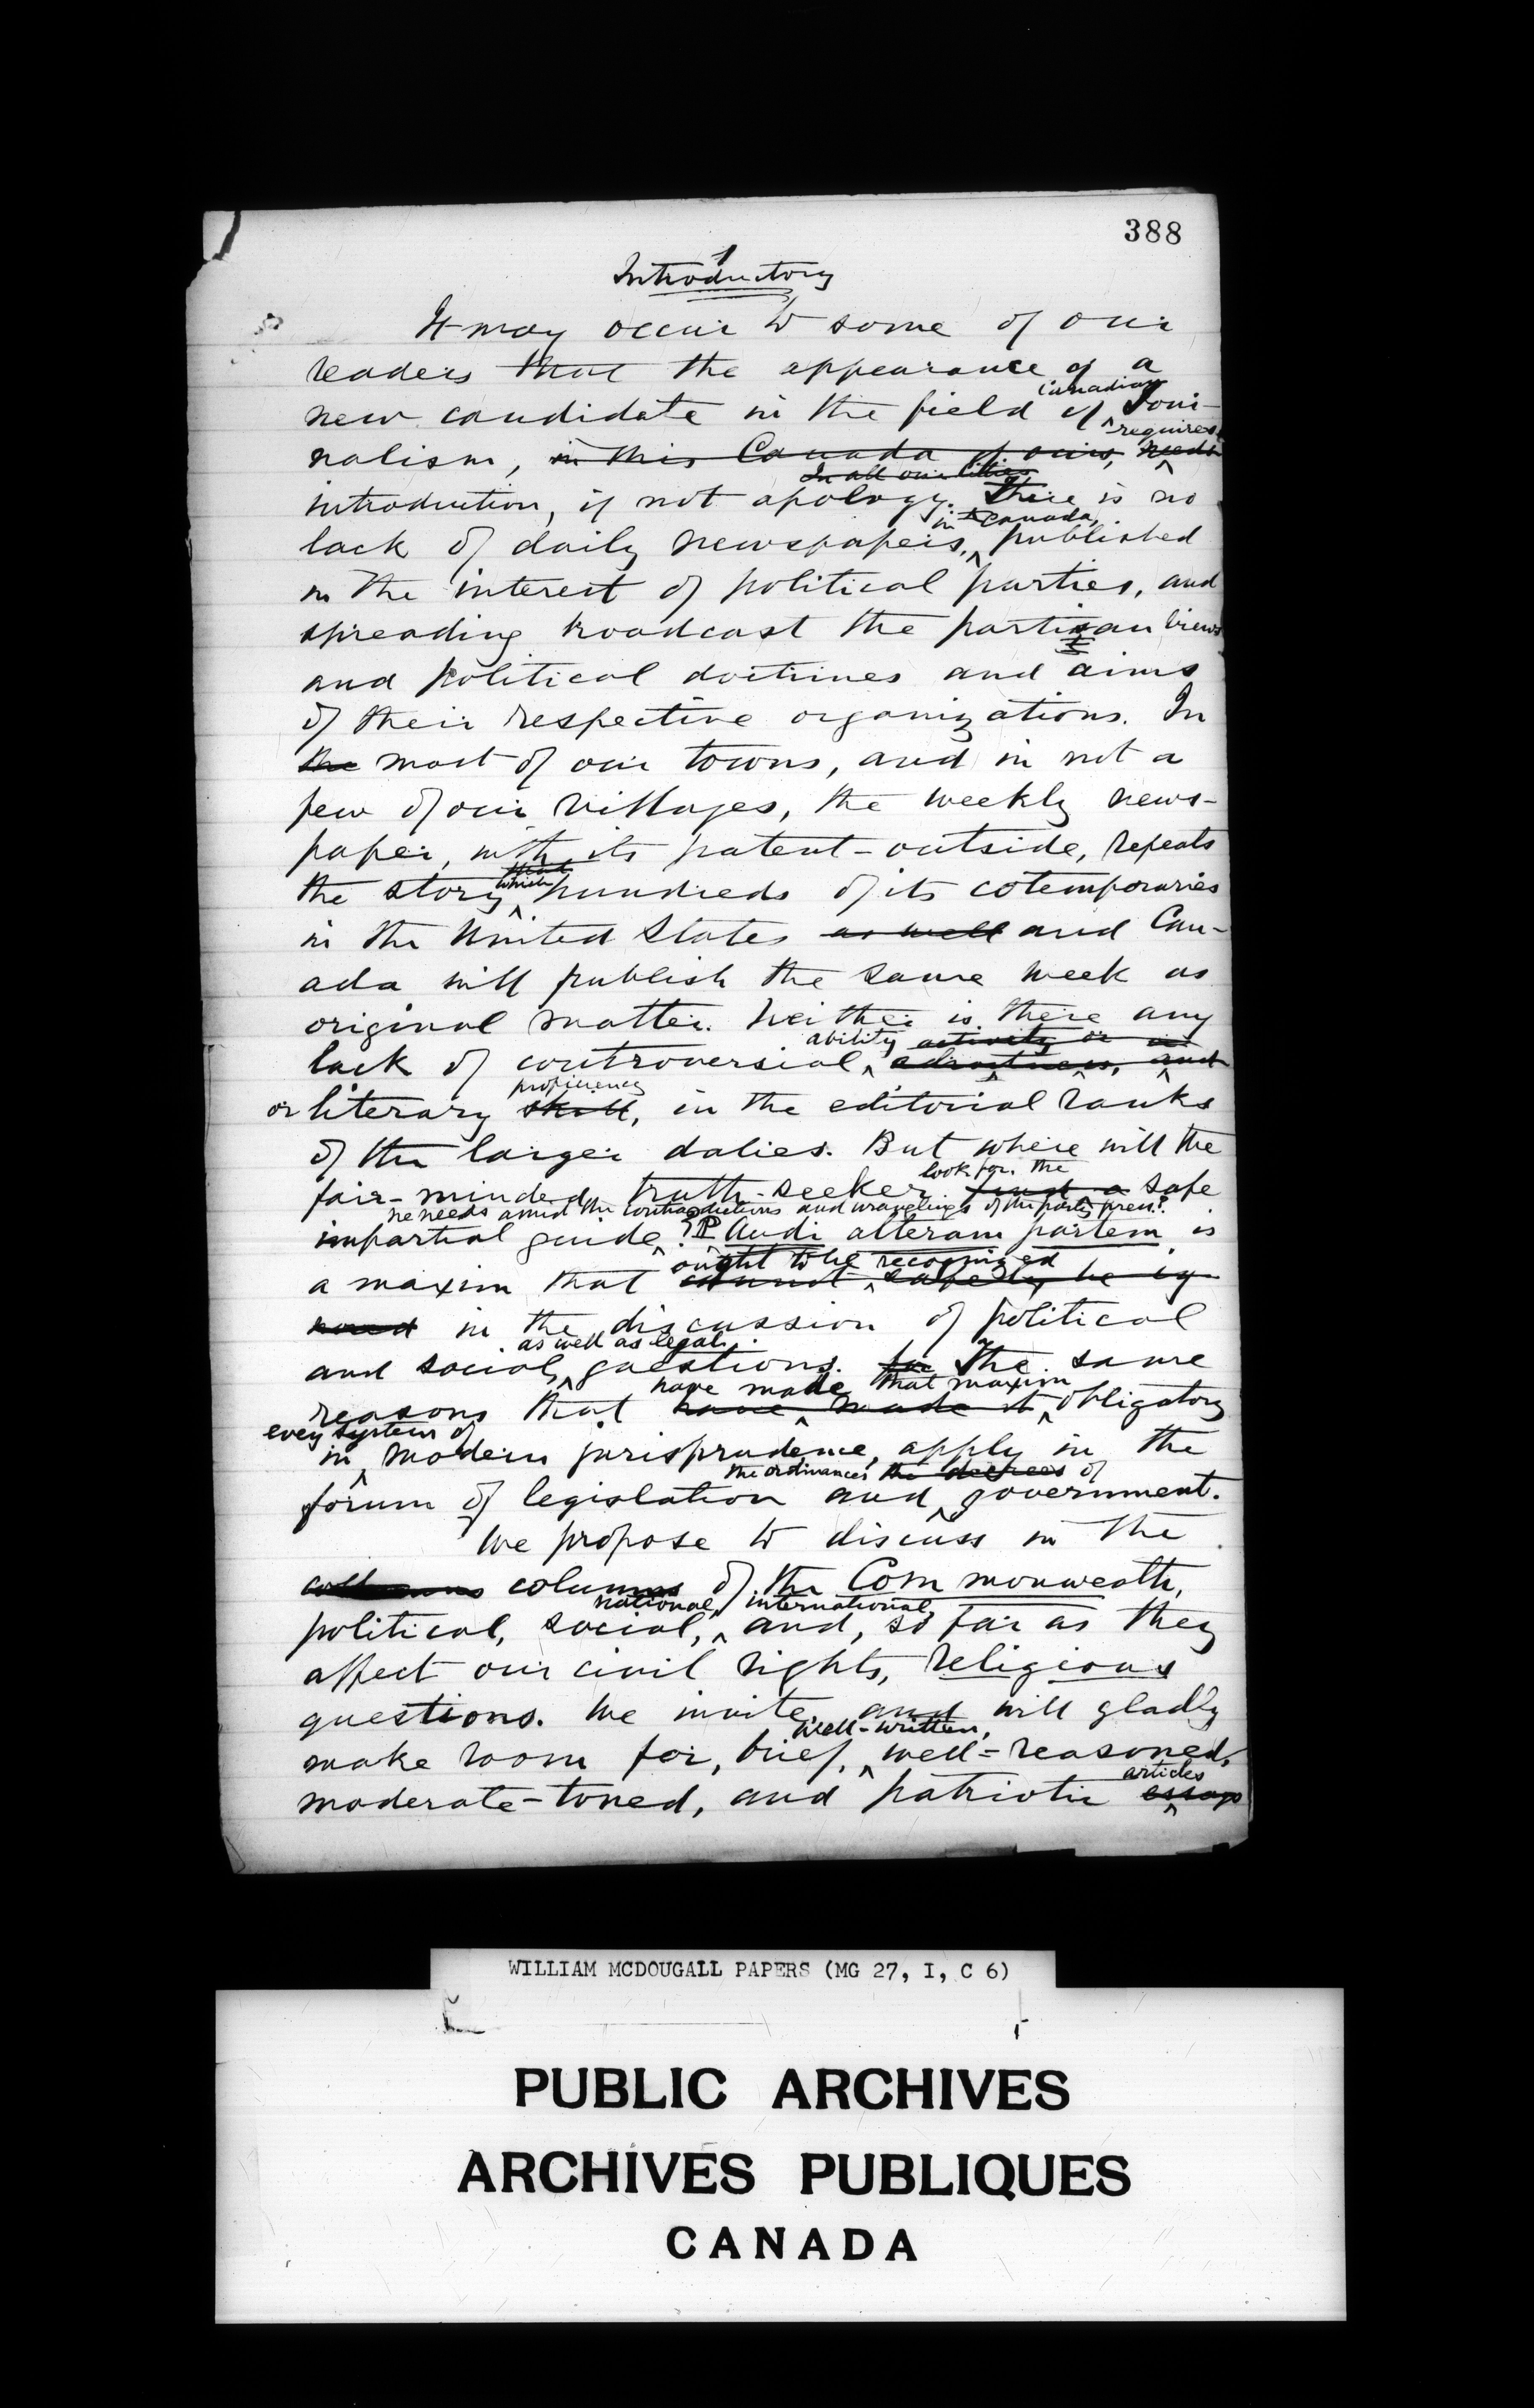 388
1
Introductory
It may occur to some of our
readers that the appearance of a
Canadian
new candidate in the field of Jour-
requires
nalism, in this Canada of ours, needs
In all our cities
introduction, if not apology. There is no
in Canada,
lack of daily newspapers, published
in the interest of political parties, and
spreading broadcast the partizan views
and political doctrines and aims
of their respective organizations. In
the most of our towns, and in not a
few of our villages, the weekly news-
paper, with its patent-outside, repeats
which
the story hundreds of its cotemporaries
in the United States as well and Can-
ada will publish the same week as
original matter. Neither is there any
ability activity or
lack of controversial, adroitness, and
proficiency
or literary skill, in the editorial ranks
of the larger dalies. But where will the
look for the
fair-minded truth-seeker find a safe
he needs amid the contradictions and wranglings of the party press?
impartial guide? Audi alteram partem is
ought to be recognized
a maxim that cannot safely be ig-
nored in the discussion of political
as well as legal
and social, questions. for The same
have made that maxim
reasons that have made it obligatory
every system of
in modern jurisprudence, apply in the
the ordinances the decrees of
forum of legislation and government.
We propose to discuss in the
columns of the Commonwealth,
national, international,
political, social, and, so far as they
affect our civil rights, religious
questions. We invite, and will gladly
well-written,
make room for, brief, well-reasoned,
articles
moderate-toned, and patriotic essays
WILLIAM MCDOUGALL PAPERS (MG 27, I, C 6)
PUBLIC ARCHIVES
ARCHIVES PUBLIQUES
CANADA